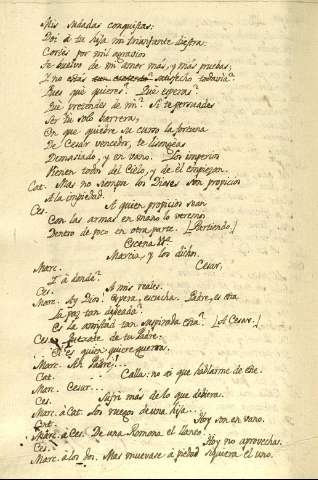 Mis sudadas conquistas:
Doi à tu hija mi triunfante diestra:
Cortés por mil agravios
Te vuelvo de mi amor más, y más pruebas,
I no estás satisfecho todavia?
Pues qué quieres? Qué esperas?
Qué pretendes de mi? Si te persuades
Ser tú solo barrera,
En que quiebre su curso la fortuna
De Cesar vencedor, te lisongeas
Demasiado, y en vano. Los imperios
Penden todos del Cielo, y de él empiezan.
Cat. Mas no siempre los Dioses son propicios
A la impiedad.
Ces. A quien propicios sean
Con las armas en mano lo veremos
Dentro de poco en otra parte. [Partiendo.]
Escena 11ª
Marcia, y los dichos.
Marc. Cesar,
I à donde?
Ces. A mis reales.
Marc. Ay Dios! Espera, escucha. Padre, es esta
La paz tan deseada?
Es la amistad tan suspirada esta? [A Cesar.]
Ces. Quexate de tu Padre.
El es quien quiere guerra.
Marc. Ah Padre!...
Cat. Calla: no ai que hablarme de ese.
Marc. Cesar...
Ces. Sufri más de lo que debiera.
Marc. à Cat. Los ruegos de una hija...
Cat. Hoy son en vano.
Marc. à Ces. De una Romana el llanto...
Ces. Hoy no aprovecha.
Marc. à los dos. Mas muevase à piedad siquiera el uno.